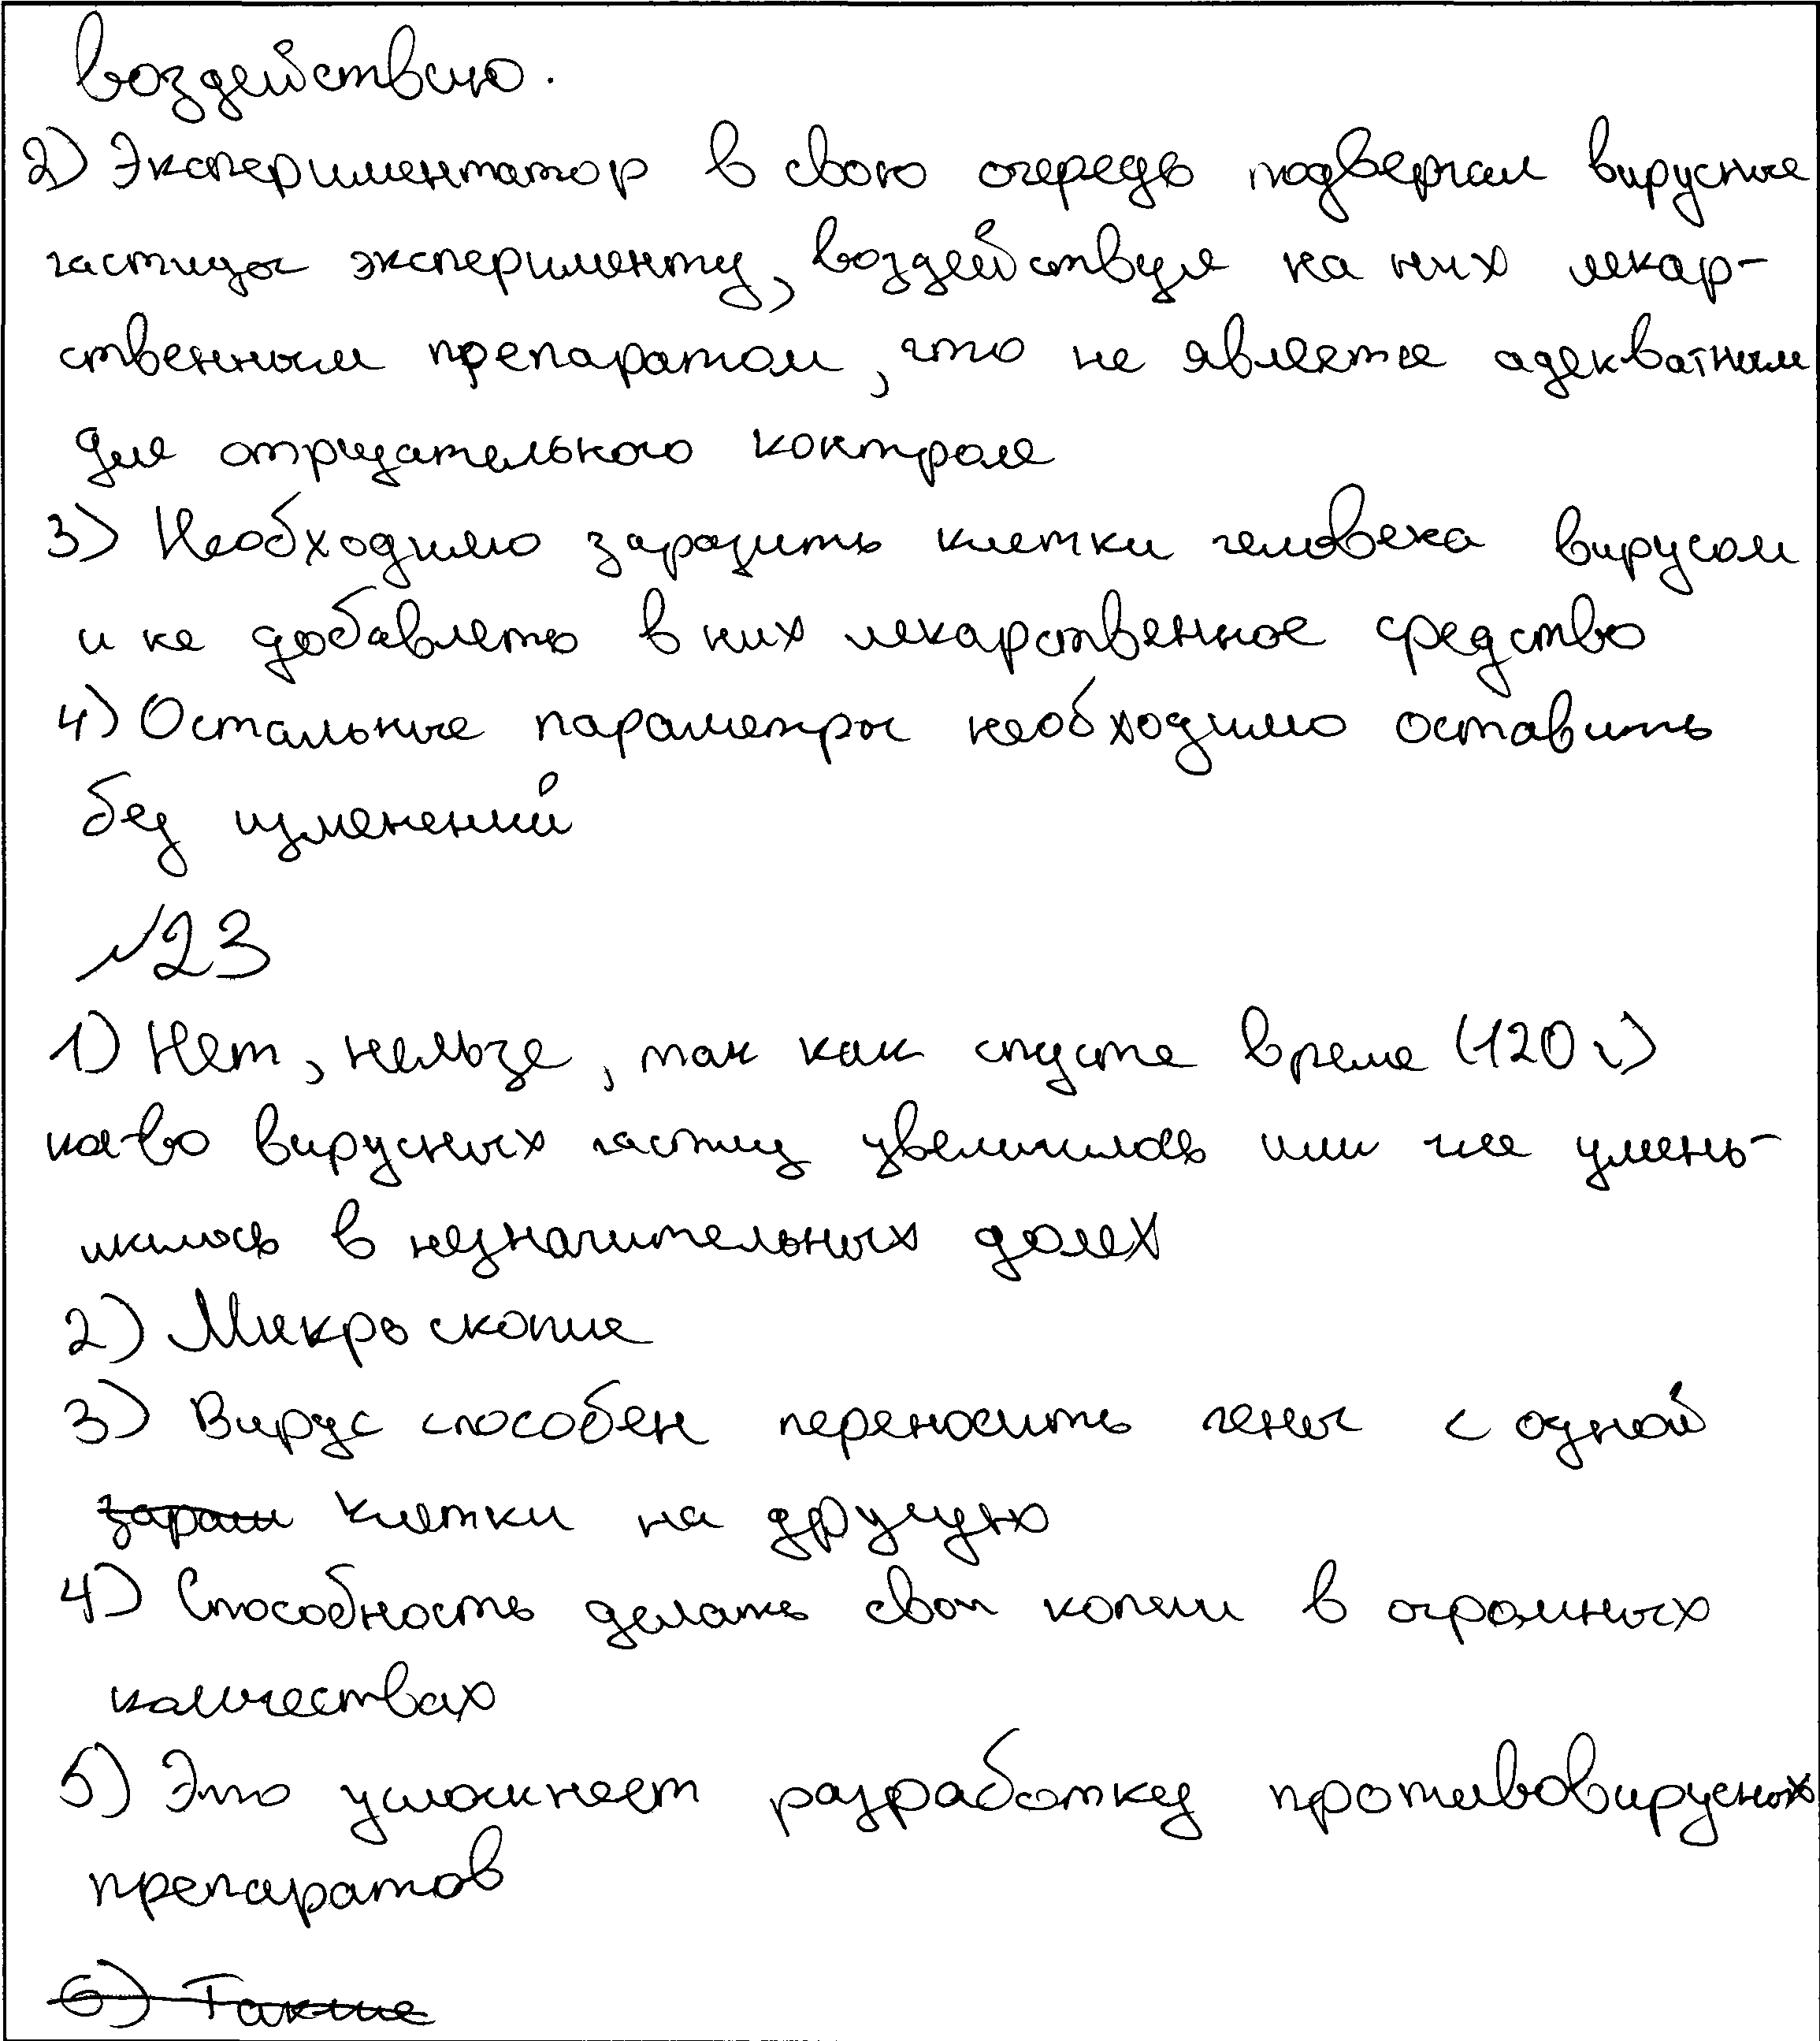 воздействию.
2) Экспериментатор в свою очередь подвергал вирусные
частицы эксперименту, воздействуя на них лекар-
ственным препаратом, что не является адекватным
для отрицательного контроля
3) Необходимо заразить клетки человека вирусом
и не добавлять в них лекарственное средство
4) Остальные параметры необходимо оставить
без изменений
№23
1) Нет, нельзя, так как спустя время (120 ч)
кол-во вирусных частиц увеличилось или же умень-
шилось в незначительных долях
2) Микроскопия
3) Вирус способен переносить гены с одной
зараж клетки на другую
4) Способность делать свои копии в огромных
количествах
5) Это усложняет разработку противовирусных
препаратов
6) Также